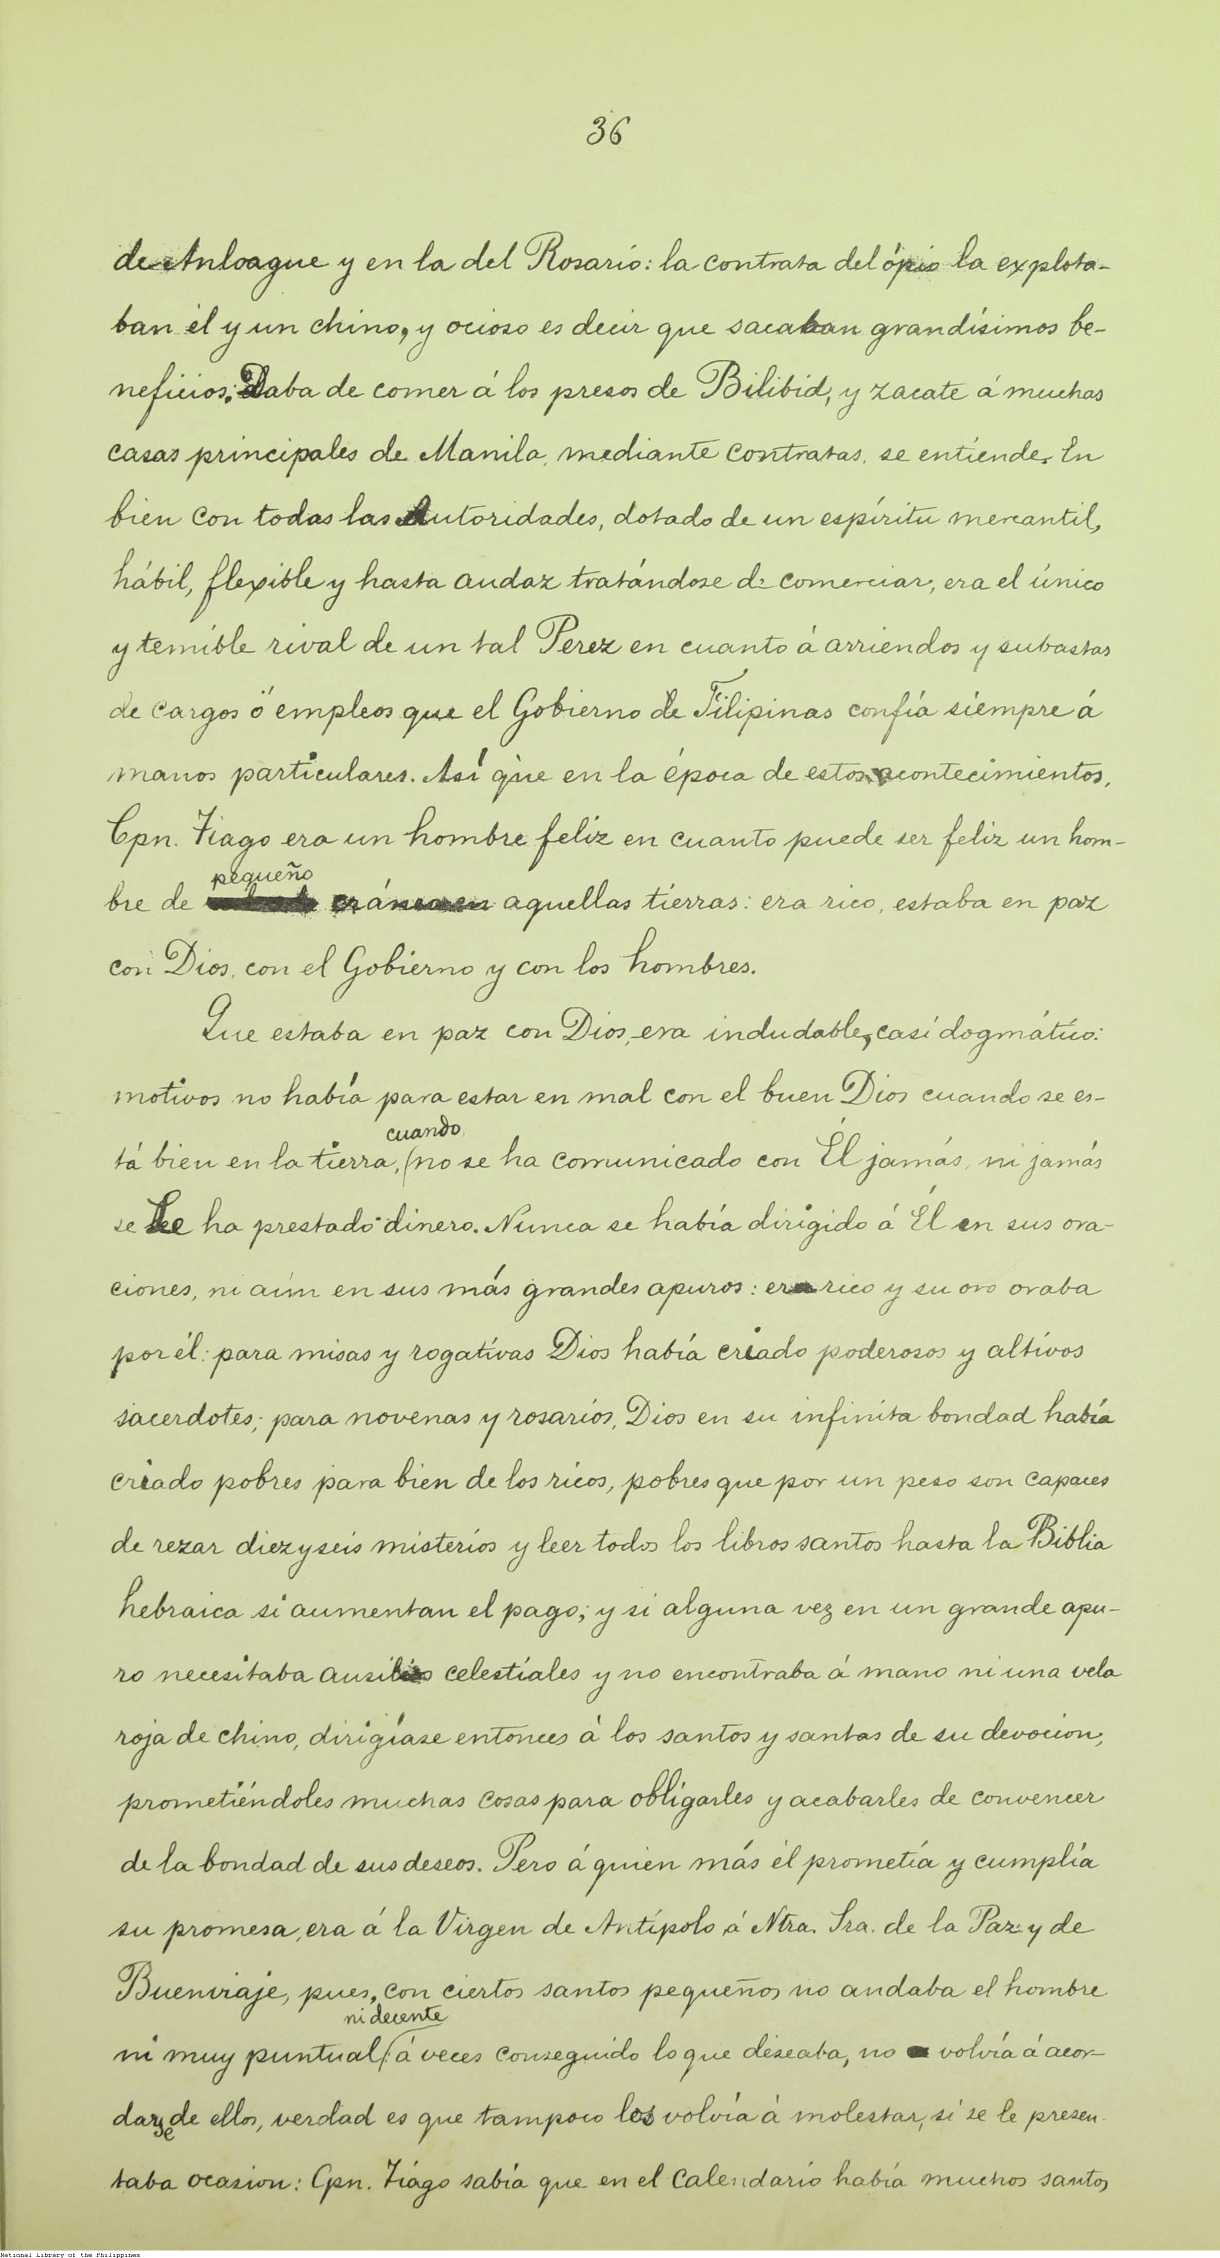 36
de Anloague y en la del Rosario: la contrata del ópio la explota-
ban él y un chino, y ocioso es decir que sacaban grandísimos be-
neficios. Daba de comer á los presos de Bilibid, y zacate á muchas
casas principales de Manila, mediante contratas, se entiende. En
bien con todas las Autoridades, dotado de un espíritu mercantil,
hábil, flexible y hasta audaz tratándose de comerciar, era el único
y temible rival de un tal Perez en cuanto á arriendos y subastas
de cargos ó empleos que el Gobierno de Filipinas confía siempre á
manos particulares. Así que en la época de estos acontecimientos,
Cpn. Tiago era un hombre feliz en cuanto puede ser feliz un hom-
pequeño
bre de cráneo en aquellas tierras: era rico, estaba en paz
con Dios, con el Gobierno y con los hombres.
Que estaba en paz con Dios, era indudable, casi dogmático:
motivos no había para estar en mal con el buen Dios cuando se es-
cuando
tá bien en la tierra, (no se ha comunicado con Él jamás, ni jamás
se Le ha prestado dinero. Nunca se había dirigido á Él en sus ora-
ciones, ni aún en sus más grandes apuros: era rico y su oro oraba
por él: para misas y rogativas Dios había criado poderosos y altivos
sacerdotes; para novenas y rosarios, Dios en su infinita bondad había
criado pobres para bien de los ricos, pobres que por un peso son capaces
de rezar diezyseis misterios y leer todos los libros santos hasta la Biblia
hebraica si aumentan el pago; y si alguna vez en un grande apu-
ro necesitaba ausilios celestiales y no encontraba á mano ni una vela
roja de chino, dirigíase entonces á los santos y santas de su devocion,
prometiéndoles muchas cosas para obligarles y acabarles de convencer
de la bondad de sus deseos. Pero á quien más él prometía y cumplía
su promesa, era á la Virgen de Antípolo á Ntra. Sra. de la Paz y de
Buenviaje, pues, con ciertos santos pequeños no andaba el hombre
ni decente
ni muy puntual (á veces conseguido lo que deseaba, no volvía á acor-
darse de ellos, verdad es que tampoco los volvía á molestar, si se le presen-
taba ocasion: Cpn. Tiago sabía que en el Calendario había muchos santos
National Library of the Philippines